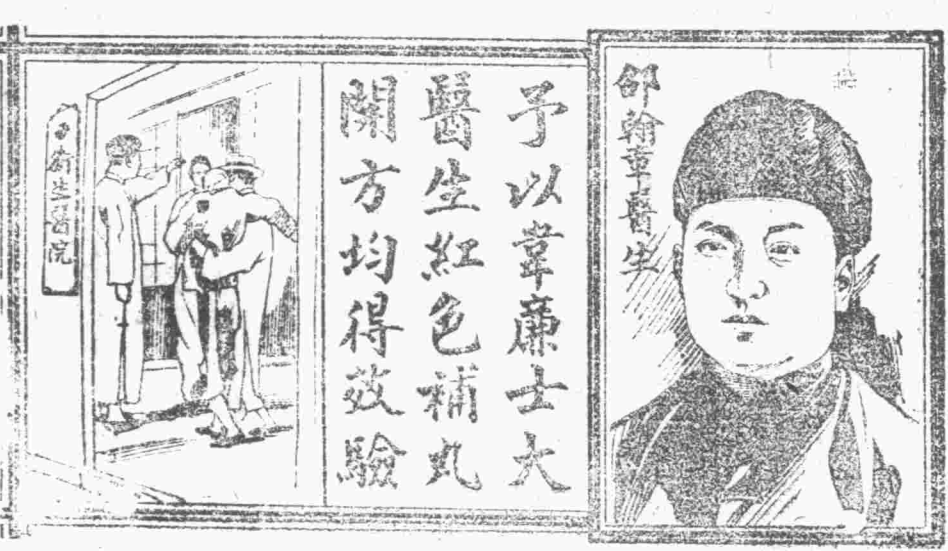 邵翰章醫生
予以韋廉士大
醫生紅色補丸
開方均得效驗
衛生醫院